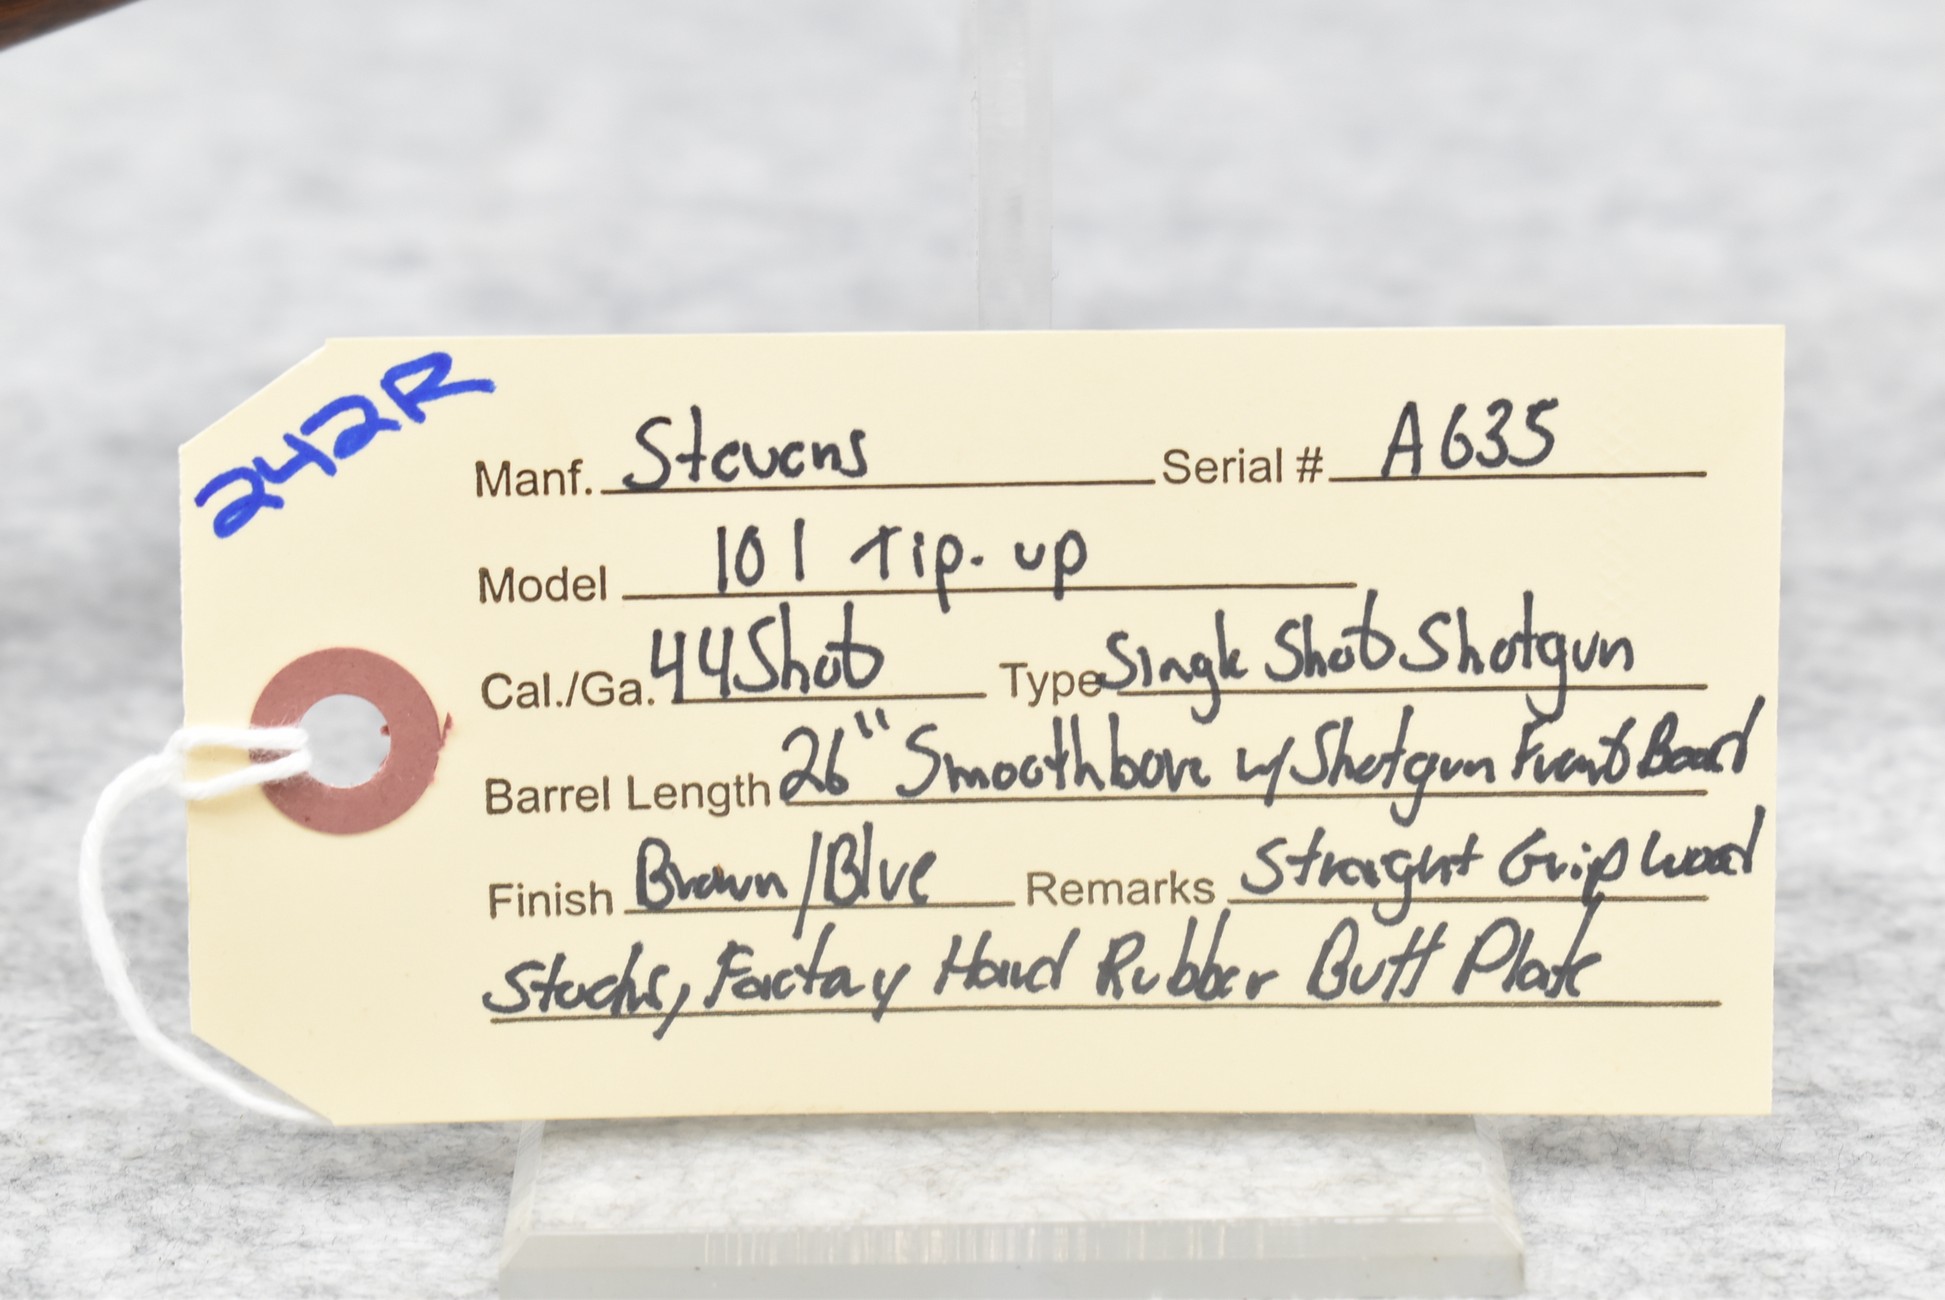 242R
Manf. Stevens Serial # A635
Model 101 Tip-up
Cal./Ga. 44 Shot Type Single Shot Shotgun
Barrel Length 26" Smooth bore w/ Shotgun Front Bead
Finish Brown/Blue Remarks Straight Grip Wood
Stocks, Factory Hard Rubber Butt Plate